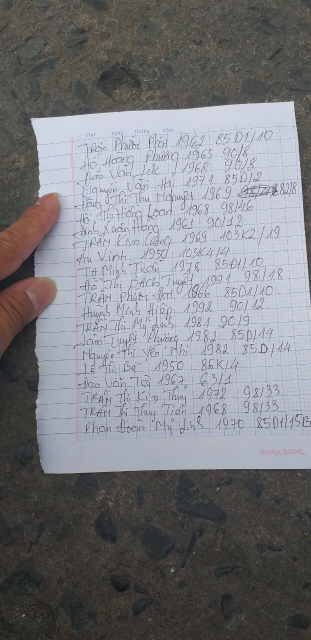 Trần Phước Đạt 1962 85D1/10
Hồ Hoàng Phương 1965 90/8
Văn Lực 1968 90/8
Nguyễn Văn Hai 1971 85D1/2
Thị Thu Nguyệt 1969 82/8
Hồ Thị Hồng Loan 1968 98/46
Xuân Hồng 1961 90/12
TRẦN Kim Cương 1969 103K2/19
Âu Vinh 1950 103K4/4
Minh Tuấn 1978 85D1/10
Hồ Thị Bạch Tuyết 1991 98/18
TRẦN Phước 1966 85D1/10
Huỳnh Minh Hiệp 1992 90/12
TRẦN Thị Mỹ 1981 90/9
Tuyết Phương 1982 85D/14
Nguyễn Thị Yến Nhi 1982 85D/14
Lê Thị Bé 1950 86K/4
Văn Tài 1967 63/1
TRẦN Thị Kim Thủy 1972 98/33
TRẦN Thị Thủy Tiên 1968 98/33
Phan Đoàn Mỹ Linh 1970 85D1/15B